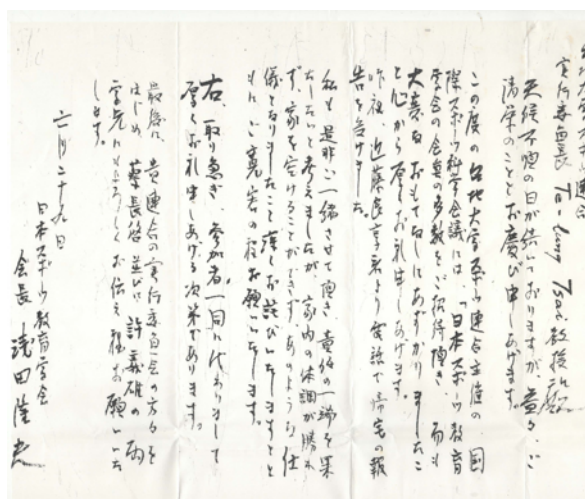 実行委員長 Ta-lung Tsai教授殿
天候不順の日が続いておりますが、益々、ご
清栄のこととお慶び申しあげます。
この度の台北大学
際スポーツ科学会議には、「日本スポーツ教育
学会の会員の多数をご招待頂き、而も
大変なおもてなしにあずかりましたこ
と心から厚くお礼申しあげます。
昨夜、近藤良享君より電話で帰宅の報
告を受けました。
私も是非ご一緒させて頂き、責任の一端を果
たしたいと考えましたが、家内の体調が勝れ
ず、家を空けることができずありのような仕
儀となりましたこと深くお詫びいたしますとと
もに、ご寛容の程お願いいたします。
右、取り急ぎ、参加者一同に代わりまして
厚くお礼申しあげる次第であります。
最後に、貴連合の実行委員会の方々を
はじめ、蔡長啓並びに許義雄の両
学兄にもよろしくお伝え程お願いいた
します。
六月二十九日
日本スポーツ教育学会
会長 浅田隆夫